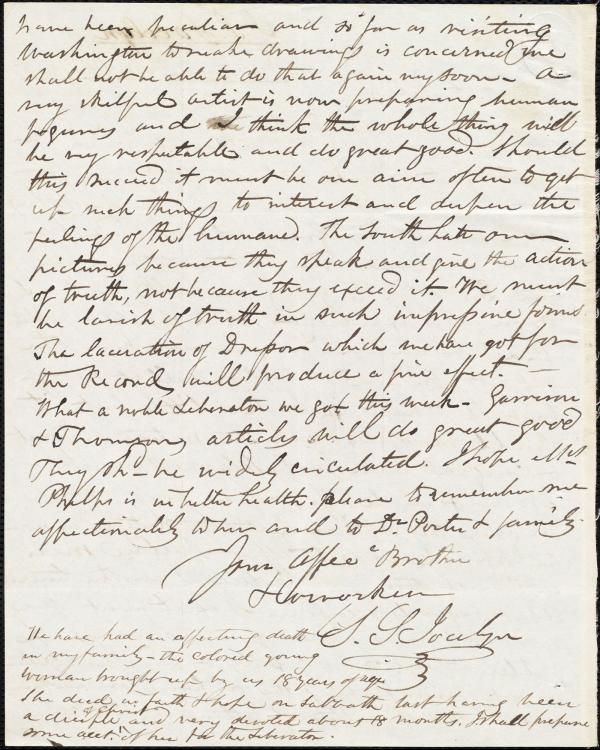 have been peculiar and so far as visiting
Washington to make drawings is concerned we
shall not be able to do that again very soon - A
very skilful artist is now preparing human
figures and I think the whole thing will
be very respectable and do great good. Should
this succeed it must be our aim often to get
up such things to interest and deepen the
feelings of the humane. The South hate our
pictures because they speak and give the action
of truth, not because they exceed it. We must
be lavish of truth in such impressive forms
The laceration of Dresser which we have got for
the Record will produce a fine effect. -
What a noble Liberator we got this week - Garrison
& Thomsons articles will do great good
They shd be widely circulated. I hope Mrs
Phelps is in better health. please to remember me
affectionately to her and to Dr Porter & family.
Your Affece Brother
& Coworker
S. S. Jocelyn
We have had an affecting death
in my family - the colored young
woman brought up by us 18 years of age
She died in faith & hope on Sabbath last having been
a disciple of Christ and very devoted about 18 months. I shall prepare
some acct. of her for the Liberator.